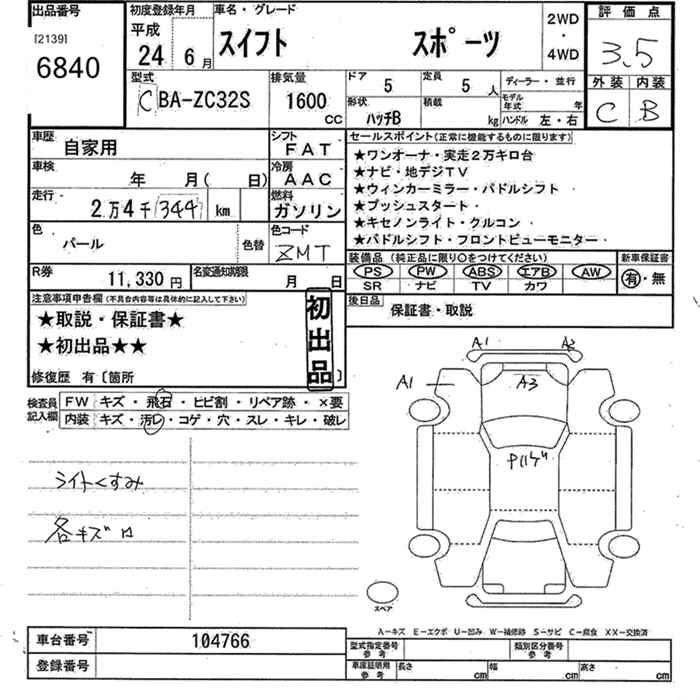 出品番号
[2139]
6840
初度登録年月
平成
24 6月
車名・グレード
スイフト スポーツ
2WD
・
4WD
評価点
3.5
外装 内装
C B
型式
CBA-ZC32S
排気量
1600
CC
ドア 5
定員 5人
ディーラー・並行
形状 ハッチB
積載 kg
モデル年式 年
ハンドル 左・右
車歴 自家用
シフト FAT
車検 年 月( 日)
冷房 AAC
走行 2万4千344 km
燃料 ガソリン
色 パール
色替
色コード ZMT
R券 11,330円
名変通知期限 月 日
セールスポイント(正常に機能するものに限ります)
★ワンオーナ・実走2万キロ台
★ナビ・地デジTV
★ウィンカーミラー・パドルシフト
★プッシュスタート・
★キセノンライト・クルコン
★パドルシフト・フロントビューモニター
装備品(純正品に限り○をつけてください)
PS PW ABS エアB AW
SR ナビ TV カワ
新車保証書
有・無
後日品 保証書・取説
注意事項申告欄(不具合内容等は具体的に記入して下さい)
★取説・保証書★
★初出品★★
初出品
修復歴 有〔箇所 〕
検査員記入欄
FW キズ・飛石・ヒビ割・リペア跡・×要
内装 キズ・汚レ・コゲ・穴・スレ・キレ・破レ
ライトくすみ
各キズ
A1 A2
A1 A3
スペア
A-キズ E-エクボ U-凹み W-補修跡 S-サビ C-腐食 XX-交換済
車台番号 104766
登録番号
型式指定番号 参考
類別区分番号 参考
車庫証明用 参考
長さ cm 幅 cm 高さ cm